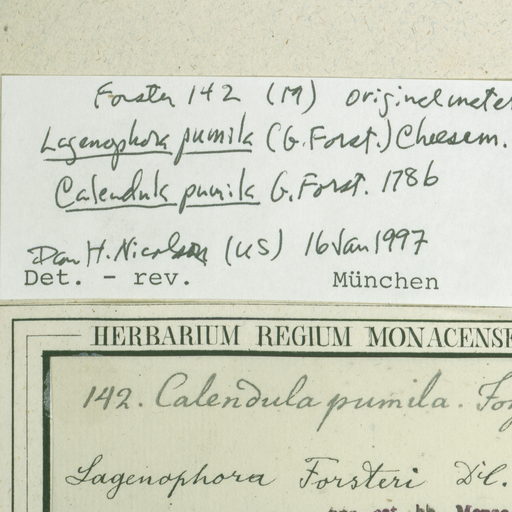 Forster 142 (M) original mater
Lagenophora pumila (G. Forst.) Cheesem.
Calendula pumila G. Forst. 1786
Dan H. Nicolson (US) 16 Jan 1997
Det. - rev. München
HERBARIUM REGIUM MONACENSE
142. Calendula pumila. For
Lagenophora Forsteri DC.